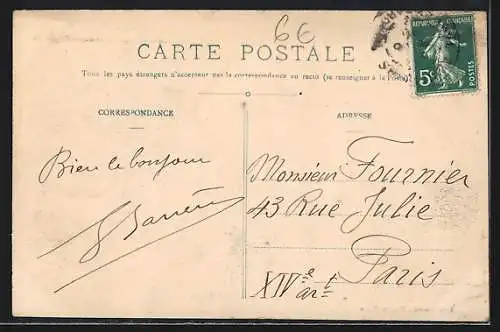 66
CARTE POSTALE
Tous les pays étrangers n'acceptent pas la correspondance au recto (se renseigner à la Poste)
REPUBLIQUE FRANÇAISE
5c
POSTES
CORRESPONDANCE
ADRESSE
Bien le bonjour
Monsieur Fournier
43 Rue Julie
Paris
XIVe art